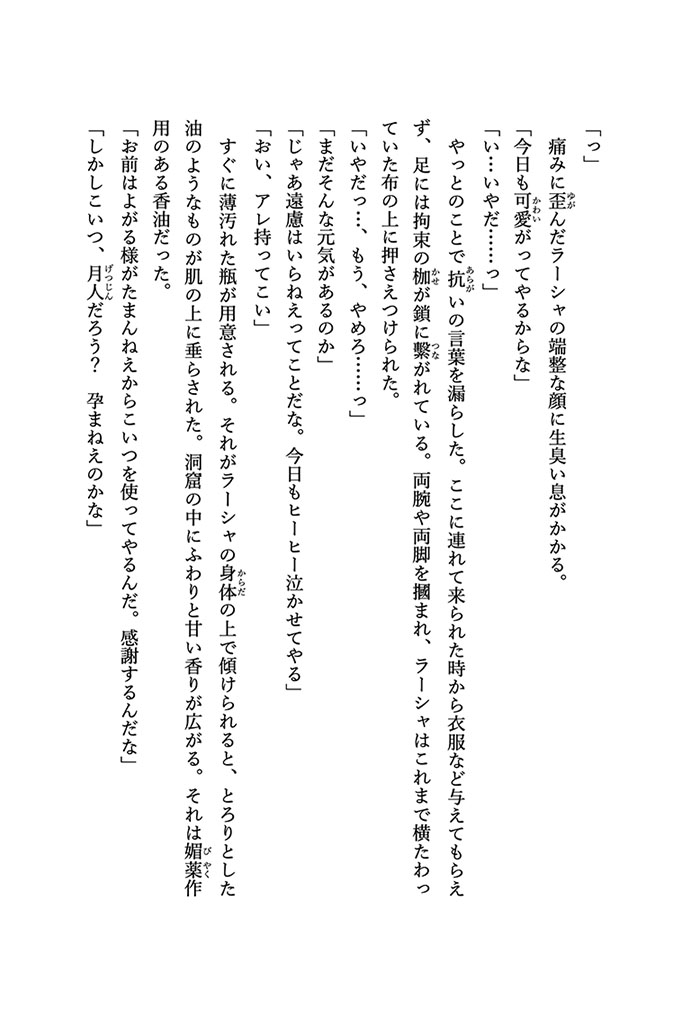 「っ」
痛みに歪んだラーシャの端整な顔に生臭い息がかかる。
「今日も可愛がってやるからな」
「い…いやだ……っ」
やっとのことで抗いの言葉を漏らした。ここに連れて来られた時から衣服など与えてもらえ
ず、足には拘束の枷が鎖に繫がれている。両腕や両脚を摑まれ、ラーシャはこれまで横たわっ
ていた布の上に押さえつけられた。
「いやだっ…、もう、やめろ……っ」
「まだそんな元気があるのか」
「じゃあ遠慮はいらねえってことだな。今日もヒーヒー泣かせてやる」
「おい、アレ持ってこい」
すぐに薄汚れた瓶が用意される。それがラーシャの身体の上で傾けられると、とろりとした
油のようなものが肌の上に垂らされた。洞窟の中にふわりと甘い香りが広がる。それは媚薬作
用のある香油だった。
「お前はよがる様がたまんねえからこいつを使ってやるんだ。感謝するんだな」
「しかしこいつ、月人だろう？　孕まねえのかな」